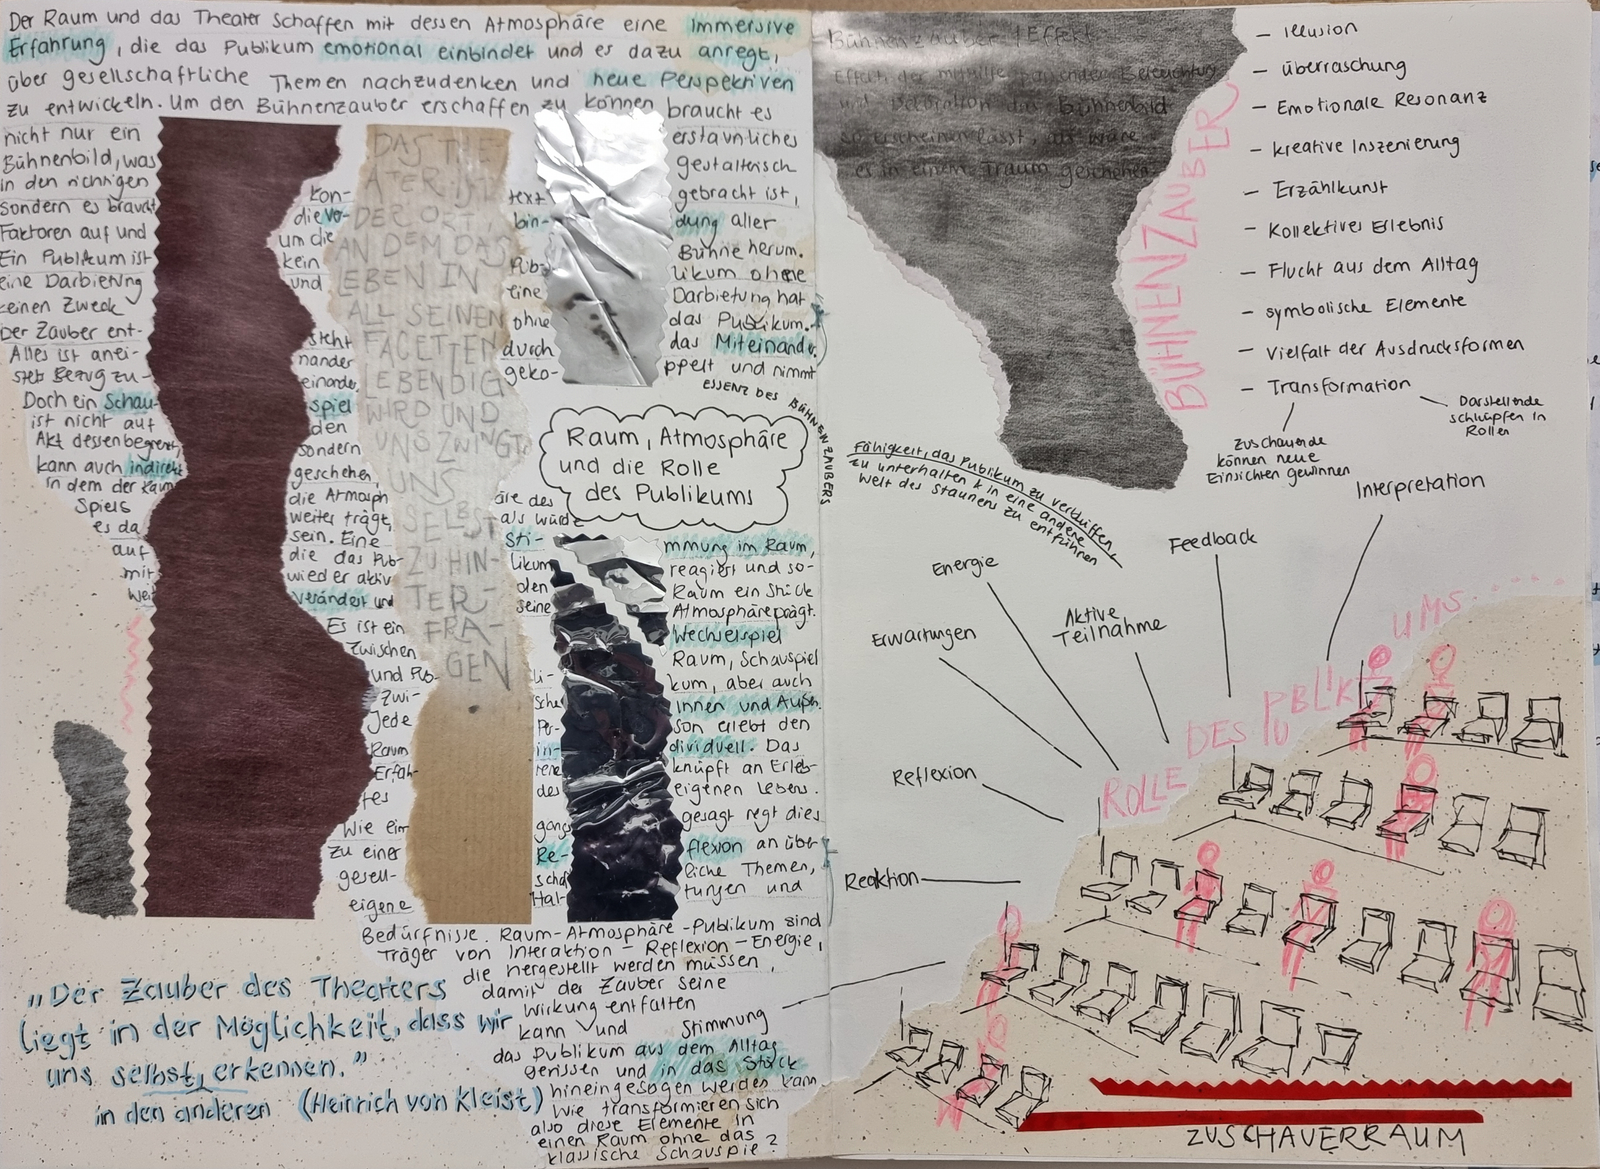 Der Raum und das Theater schaffen mit dessen Atmosphäre eine immersive
Erfahrung, die das Publikum emotional einbindet und es dazu anregt,
über gesellschaftliche Themen nachzudenken und neue Perspektiven
zu entwickeln. Um den Bühnenzauber erschaffen zu können braucht es
nicht nur ein erstaunliches
Bühnenbild, was gestalterisch
in den richtigen Kon- text gebracht ist,
sondern es braucht die Ver- bin- dung aller
Faktoren auf und um die Bühne herum.
Ein Publikum ist kein Pub- likum ohne
eine Darbietung und eine Darbietung hat
keinen Zweck ohne das Publikum.
Der Zauber ent- steht durch das Miteinander.
Alles ist anei- nander geko- ppelt und nimmt
stets Bezug zu- einander.
Doch ein Schau- spiel
ist nicht auf den
Akt dessen begrenzt, sondern
kann auch indirekt geschehen,
in dem der Raum die Atmosph äre des
Spiels weiter trägt, als würde
es da sein. Eine Sti- mmung im Raum,
auf die das Pub- likum reagiert und so-
mit wieder aktiv den Raum ein Stück
weit verändert und seine Atmosphäre prägt.
Es ist ein Wechselspiel
zwischen Raum, Schauspiel
und Pub- li- kum, aber auch
Zwi- sche Innen und Auß.
Jede Per- son erlebt den
Raum in- dividuell. Das
Erfah- rene knüpft an Erleb-
tes des eigenen Lebens.
Wie ein gangs gesagt regt dies
zu einer Re- flexion an über
gesell- scha liche Themen,
eigene Hal- tungen und
Bedürfnisse. Raum-Atmosphäre-Publikum sind
Träger von Interaktion – Reflexion – Energie,
die hergestellt werden müssen,
damit der Zauber seine
Wirkung entfalten
kann und Stimmung
das Publikum aus dem Alltag
gerissen und in das Stück
hineingesogen werden kann
Wie transformieren sich
also diese Elemente in
einen Raum ohne das
klassische Schauspiel?
DAS THE-
ATER IST
DER ORT,
AN DEM DAS
LEBEN IN
ALL SEINEN
FACETTEN
LEBENDIG
WIRD UND
UNS ZWINGT,
UNS
SELBST
ZU HIN-
TER-
FRA-
GEN
Raum, Atmosphäre
und die Rolle
des Publikums
„Der Zauber des Theaters
liegt in der Möglichkeit, dass wir
uns selbst, erkennen."
in den anderen (Heinrich von Kleist)
ESSENZ DES BÜHNENZAUBERS
Fähigkeit, das Publikum zu verblüffen,
zu unterhalten & in eine andere
Welt des Staunens zu entführen
Bühnenzauber / Effekt
Effekt, der mithilfe passender Beleuchtung
und Dekoration das Bühnenbild
so erscheinen lässt, als wäre
es in einem Traum geschehen.
BÜHNENZAUBER
– Illusion
– Überraschung
– Emotionale Resonanz
– kreative Inszenierung
– Erzählkunst
– Kollektives Erlebnis
– Flucht aus dem Alltag
– symbolische Elemente
– Vielfalt der Ausdrucksformen
– Transformation
Darstellende
schlüpfen in
Rollen
Zuschauende
können neue
Einsichten gewinnen
Interpretation
Feedback
Energie
Aktive
Teilnahme
Erwartungen
Reflexion
Reaktion
ROLLE DES PUBLIKUMS....
ZUSCHAUERRAUM